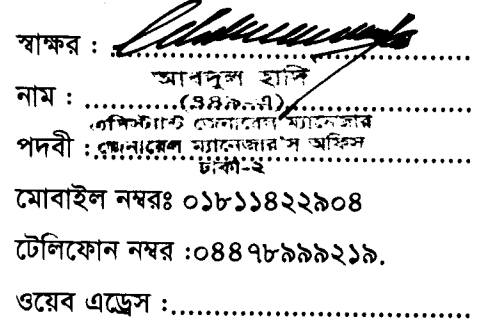 স্বাক্ষর :
আবদুল হাদি
নাম : ..........................
(৩৪৯-এ)
এসিস্ট্যান্ট জেনারেল ম্যানেজার
পদবী : জেনারেল ম্যানেজার'স অফিস
ঢাকা-২
মোবাইল নম্বরঃ ০১৮১১৪২২৯০৪
টেলিফোন নম্বর :০৪৪৭৮৯৯৯২১৯.
ওয়েব এড্রেস :..........................